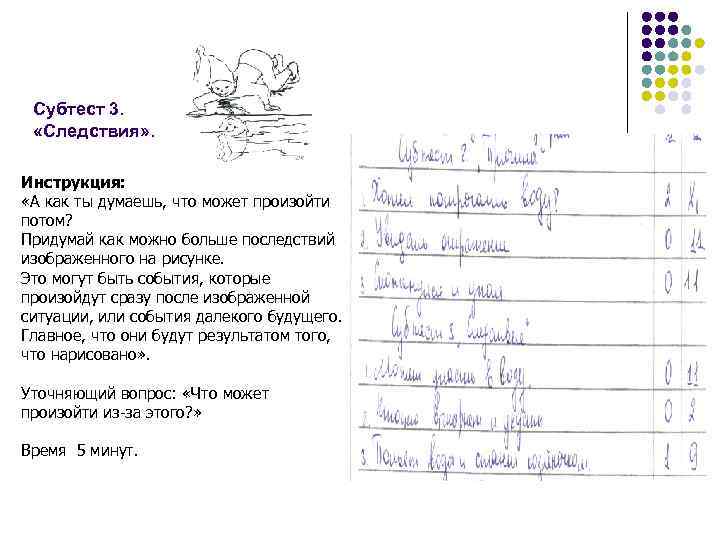 Субтест 3.
«Следствия» .
Инструкция:
«А как ты думаешь, что может произойти
потом?
Придумай как можно больше последствий
изображенного на рисунке.
Это могут быть события, которые
произойдут сразу после изображенной
ситуации, или события далекого будущего.
Главное, что они будут результатом того,
что нарисовано» .
Уточняющий вопрос: «Что может
произойти из-за этого?»
Время 5 минут.
Субтест 2. "Причина"
1. Хотел потрогать воду? 2
2. Увидать отражение 0 11
3. и упал 0 11
Субтест 3.
1. Может упасть в воду 0 11
2. 0 2
3. воды и станет 1 9